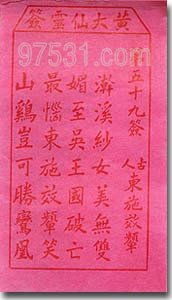 黃大仙靈簽
97531.com
第五十九簽
古人 東施效顰
澣溪紗女美無雙
媚至吳王國破亡
最惱東施效顰笑
山鷄豈可勝鸞凰